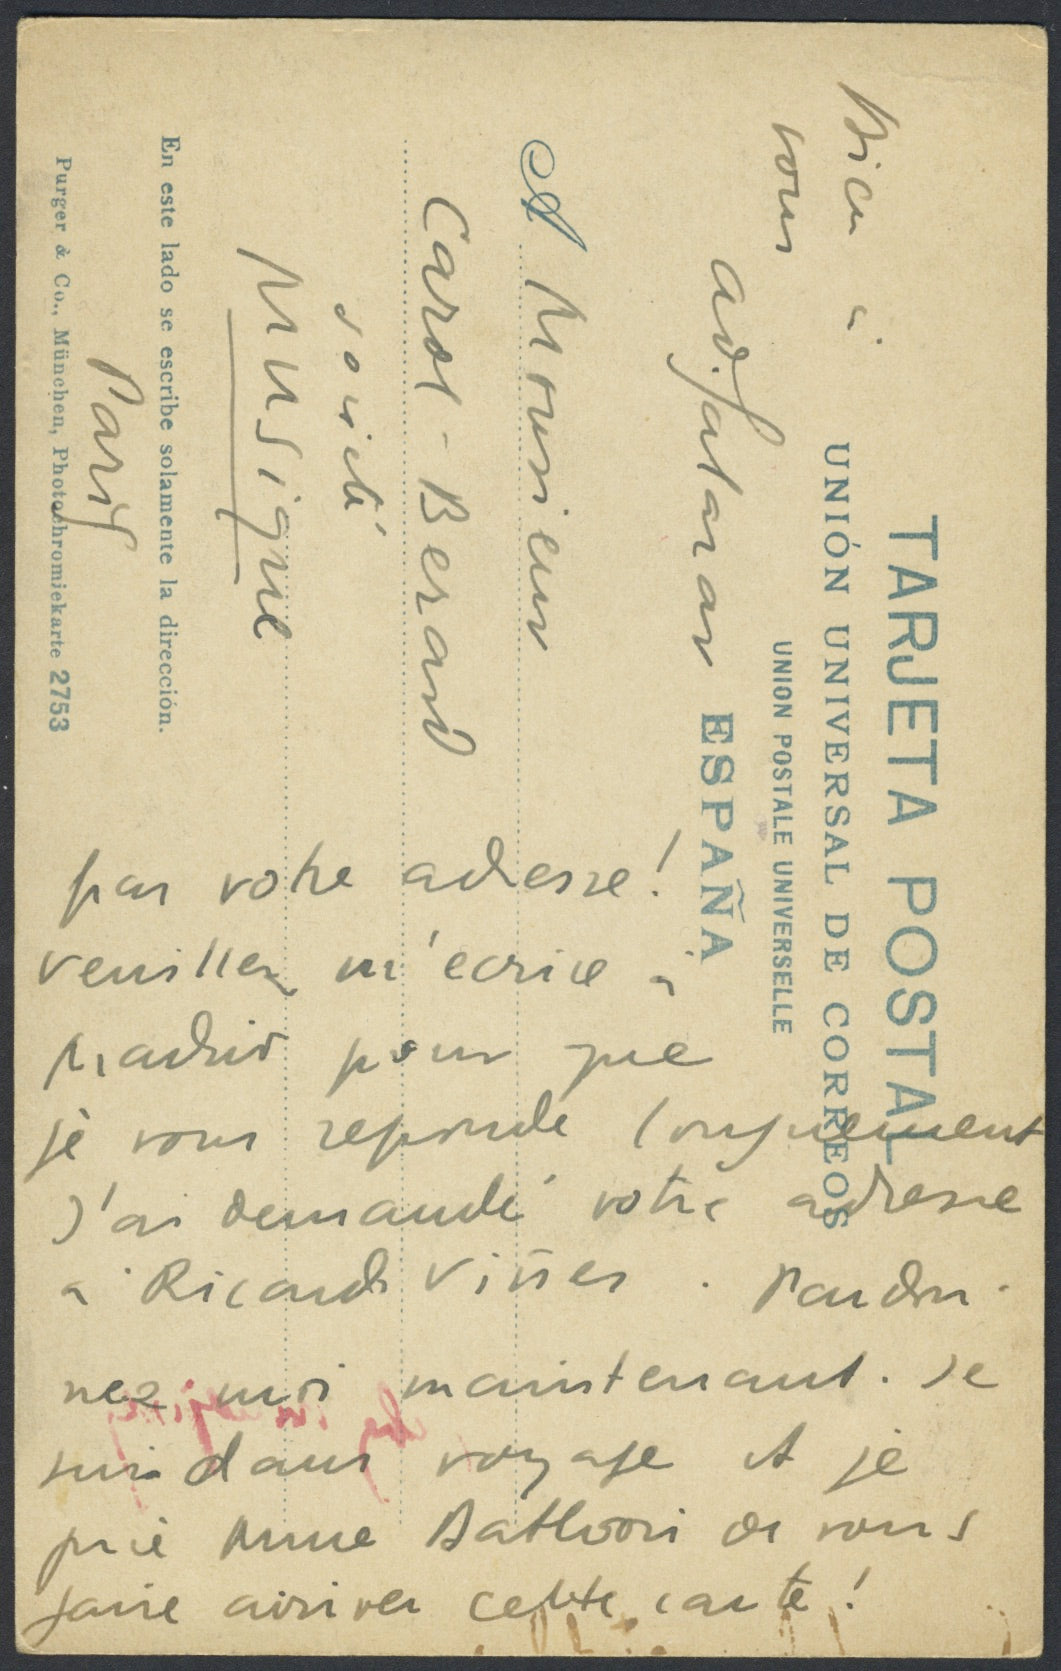 TARJETA POSTAL
UNIÓN UNIVERSAL DE CORREOS
UNION POSTALE UNIVERSELLE
ESPAÑA
A Monsieur
Carol-Berard
société
Musique
Paris
En este lado se escribe solamente la dirección.
Purger & Co., München, Photochromiekarte 2753
pas votre adresse!
veuillez m'ecrire à
Madrid pour que
je vous reponde longuement
J'ai demandé votre adresse
à Ricardo Viñes. Pardon-
nez moi maintenant. Je
suis dans voyage et je
prie Mme Bathori de vous
faire arriver cette carte!
Bien à
vous
Ad. Salazar